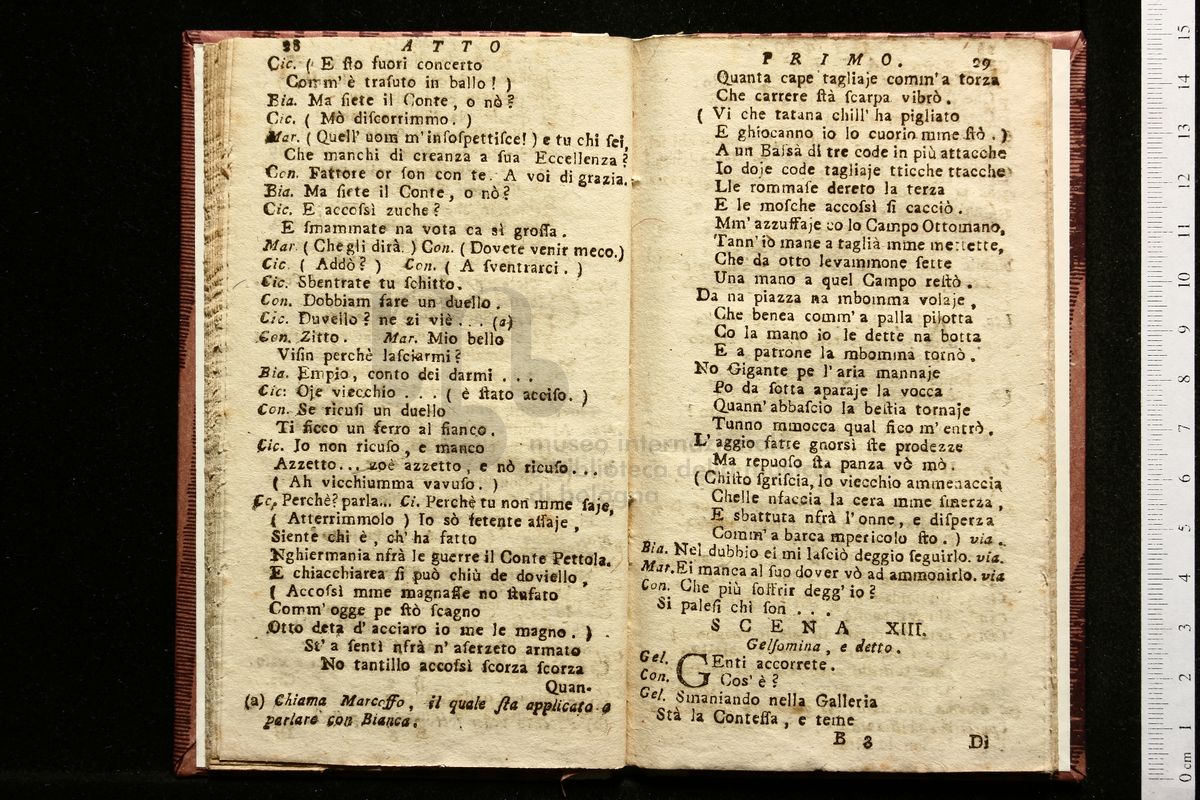 28 ATTO
Cic. ( E ſto fuori concerto
Comm' è traſuto in ballo! )
Bia. Ma ſiete il Conte, o nò?
Cic. ( Mò diſcorrimmo. )
Mar. ( Quell' uom m'inſoſpettiſce! ) e tu chi ſei,
Che manchi di creanza a ſua Eccellenza?
Con. Fattore or ſon con te. A voi di grazia.
Bia. Ma ſiete il Conte, o nò?
Cic. E accoſsì zuche?
E ſmammate na vota ca sì groſſa.
Mar. ( Che gli dirà. ) Con. ( Dovete venir meco. )
Cic. ( Addò? ) Con. ( A ſventrarci. )
Cic. Sbentrate tu ſchitto.
Con. Dobbiam fare un duello.
Cic. Duvello? ne zi viè... (a)
Con. Zitto. Mar. Mio bello
Viſin perchè laſciarmi?
Bia. Empio, conto dei darmi...
Cic: Oje viecchio... ( è ſtato acciſo. )
Con. Se ricuſi un duello
Ti ficco un ferro al fianco.
Cic. Io non ricuſo, e manco
Azzetto... zoè azzetto, e nò ricuſo...
( Ah vicchiumma vavuſo. )
Perchè? parla... Ci. Perchè tu non mme ſaje,
( Atterrimmolo ) Io sò fetente aſſaje,
Siente chi è, ch' ha fatto
Nghiermania nfrà le guerre il Conte Pettola.
E chiacchiarea ſi può chiù de doviello,
( Accoſsì mme magnaſſe no ſtufato
Comm' ogge pe ſtò ſcagno
Otto deta d' acciaro io me le magno. )
St' a ſentì nfrà n' aſerzeto armato
No tantillo accoſsì ſcorza ſcorza
Quan-
(a) Chiama Marcoffo, il quale ſta applicato a
parlare con Bianca.
PRIMO. 29
Quanta cape tagliaje comm' a torza
Che carrere ſtà ſcarpa vibrò.
( Vi che tatana chill' ha pigliato
E ghiocanno io lo cuorio mme ſtò. )
A un Baſsà di tre code in più attacche
Io doje code tagliaje tticche ttacche
Lle rommaſe dereto la terza
E le moſche accoſsì ſi cacciò.
Mm' azzuffaje co lo Campo Ottomano,
Tann' iò mane a taglià mme mettette,
Che da otto levammone ſette
Una mano a quel Campo reſtò.
Da na piazza na mbomma volaje,
Che benea comm' a palla pilotta
Co la mano io le dette na botta
E a patrone la mbomma tornò.
No Gigante pe l' aria mannaje
Po da ſotta aparaje la vocca
Quann' abbaſcio la beſtia tornaje
Tunno mmocca qual fico m' entrò.
L' aggio fatte gnorsì ſte prodezze
Ma repuoſo ſta panza vò mò.
( Chiſto sgriſcia, lo viecchio ammenaccia
Chelle nfaccia la cera mme ſmerza,
E sbattuta nfrà l' onne, e diſperza
Comm' a barca mpericolo ſto. ) via.
Bia. Nel dubbio ei mi laſciò deggio ſeguirlo. via.
Mar. Ei manca al ſuo dover vò ad ammonirlo. via
Con. Che più ſoffrir degg' io?
Si paleſi chi ſon...
SCENA XIII.
Gelſomina, e detto.
Gel. GEnti accorrete.
Con. Cos' è?
Gel. Smaniando nella Galleria
Stà la Conteſſa, e teme
B 3 Di
museo internazionale
biblioteca della musica
di bologna
0 cm 1 2 3 4 5 6 7 8 9 10 11 12 13 14 15